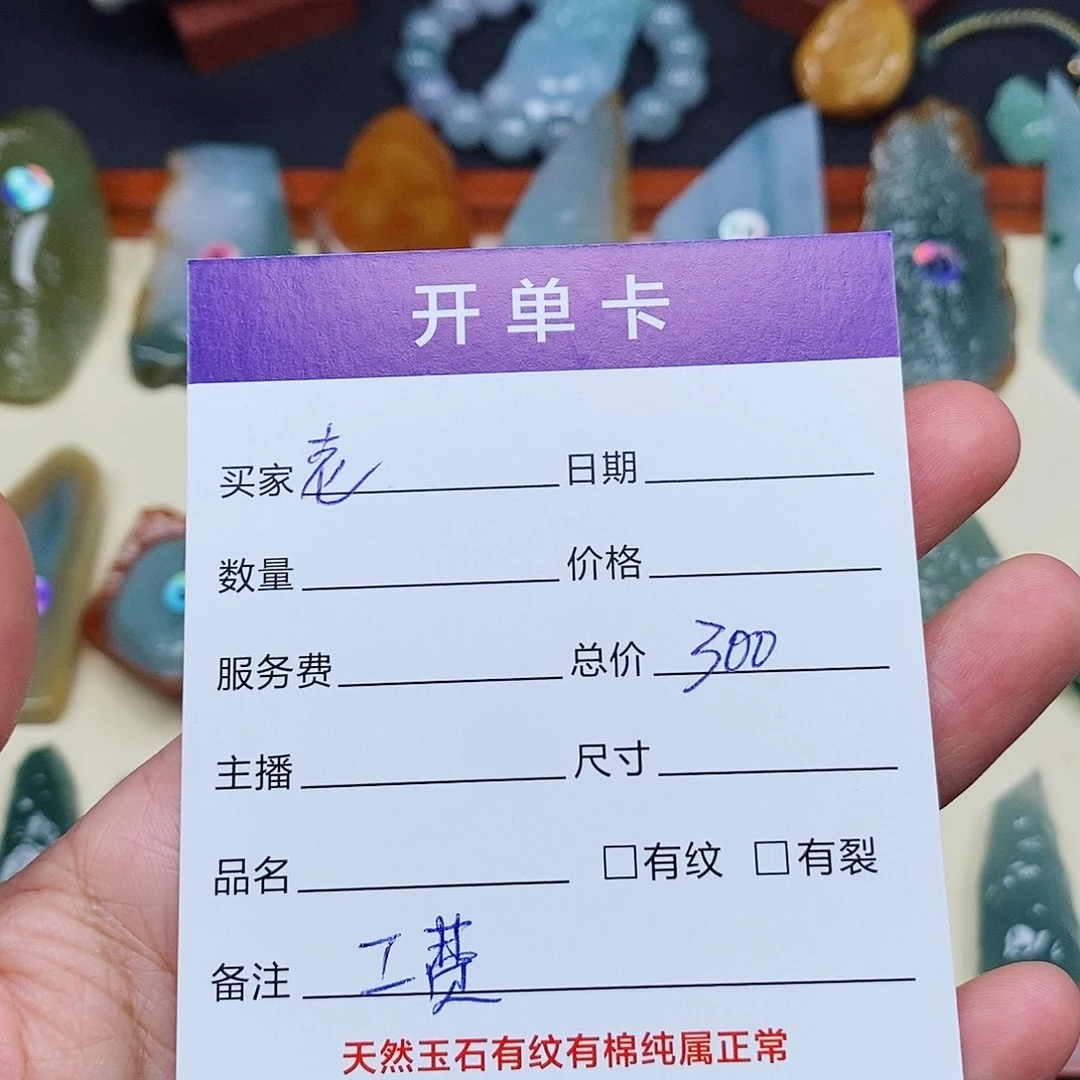 开单卡
买家 日期
数量 价格
服务费 总价 300
主播 尺寸
品名 □有纹 □有裂
备注 工费
天然玉石有纹有棉纯属正常